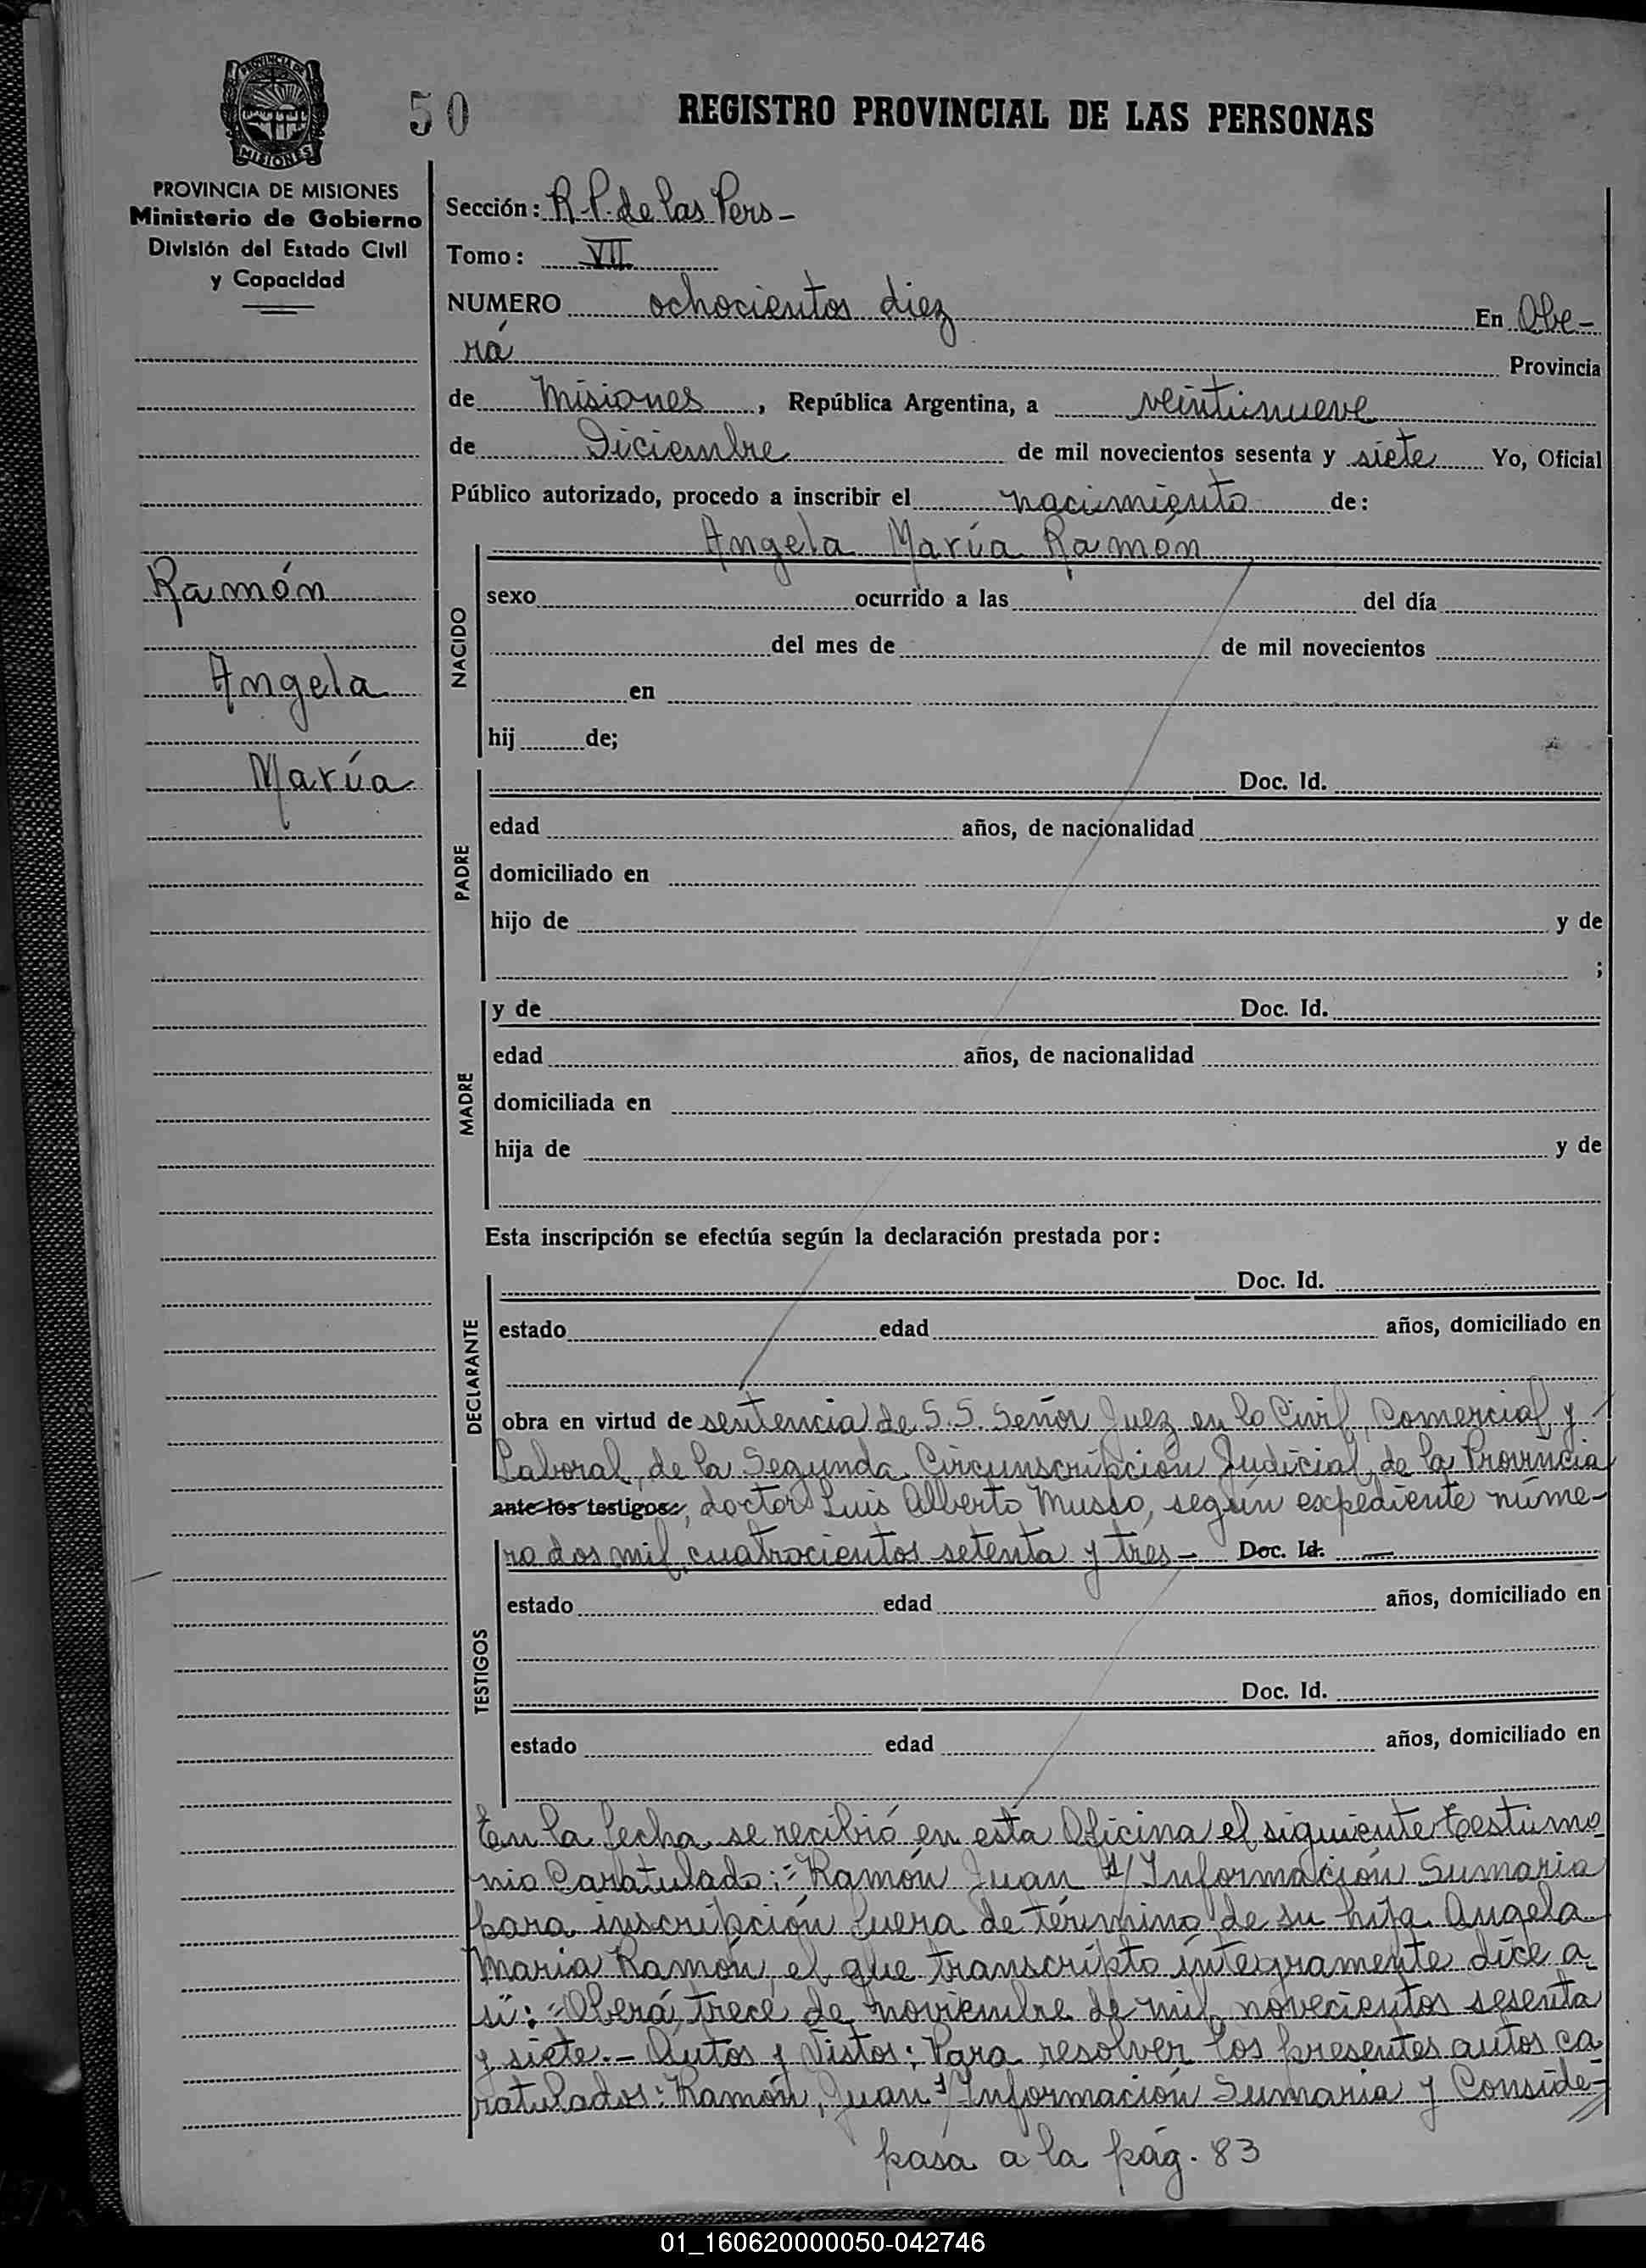 50
REGISTRO PROVINCIAL DE LAS PERSONAS
PROVINCIA DE
MISIONES
PROVINCIA DE MISIONES
Ministerio de Gobierno
División del Estado Civil
y Capacidad
Ramón
Angela
María
Sección: R.P. de las Pers-
Tomo: VII
NUMERO ochocientos diez En Obe-
rá Provincia
de Misiones, República Argentina, a veintinueve
de Diciembre de mil novecientos sesenta y siete Yo, Oficial
Público autorizado, procedo a inscribir el nacimiento de:
NACIDO
Angela María Ramón
sexo ocurrido a las del día
del mes de de mil novecientos
en
hij de;
PADRE
Doc. Id.
edad años, de nacionalidad
domiciliado en
hijo de y de
;
MADRE
y de Doc. Id.
edad años, de nacionalidad
domiciliada en
hija de y de
Esta inscripción se efectúa según la declaración prestada por:
DECLARANTE
Doc. Id.
estado edad años, domiciliado en
obra en virtud de sentencia de S.S. Señor Juez en lo Civil, Comercial y
Laboral, de la Segunda Circunscripción Judicial, de la Provincia
ante los testigos:, doctor Luis Alberto Musso, según expediente núme-
ro dos mil cuatrocientos setenta y tres- Doc. Id. —
TESTIGOS
estado edad años, domiciliado en
Doc. Id.
estado edad años, domiciliado en
En la fecha se recibió en esta Oficina el siguiente testimo
nio Caratulado:=Ramón Juan s/ Información Sumaria
para inscripción fuera de término de su hija Angela
María Ramón, el que transcripto íntegramente dice a
sí:=Oberá, trece de noviembre de mil novecientos sesenta
y siete.- Autos y Vistos: Para resolver los presentes autos ca
ratulados: Ramón, Juan s/ Información Sumaria y Conside-
pasa a la pág. 83
01_160620000050-042746